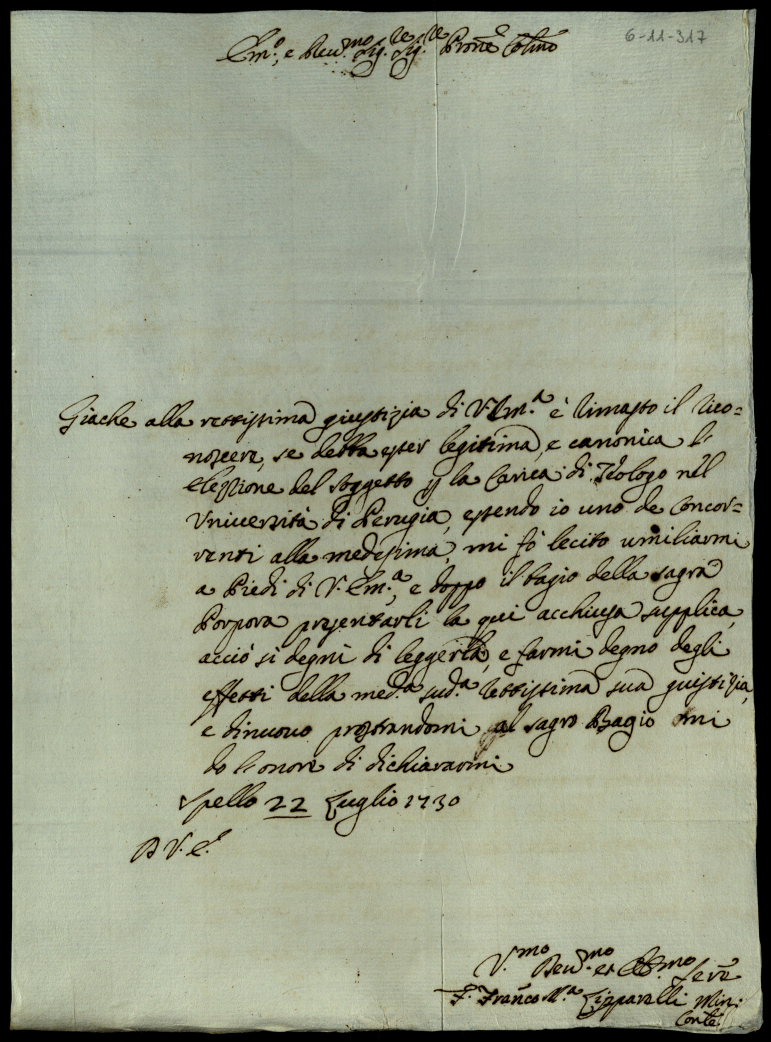 6-11-317
Em.º, e Reu.mo Sig.re Sig.re Prone Colmo
Giache alla rettissima giustizia di V. Em.ª è rimasto il rico=
noscere, se debba esser legitima, e canonica l'
elezzione del soggetto p la Carica di Teologo nel
Vniuersità di Perugia, essendo io uno de Concor=
renti alla medesima, mi fò lecito umiliarmi
a Piedi di V. Em.ª, e doppo il bagio della sagra
Porpora presentarli la qui acchiusa supplica,
acciò si degni di leggerla, e farmi degno degli
effetti della med.ª sud.ª rettissima sua giustizia,
e dinuouo prostrandomi al sagro Bagio mi
do l'onore di dichiararmi
Spello 22 Luglio 1730
D V. E.
V.mo Deu.mo et Obb.mo Serre
F. Franco M.ª Zipparelli Min:
Conle